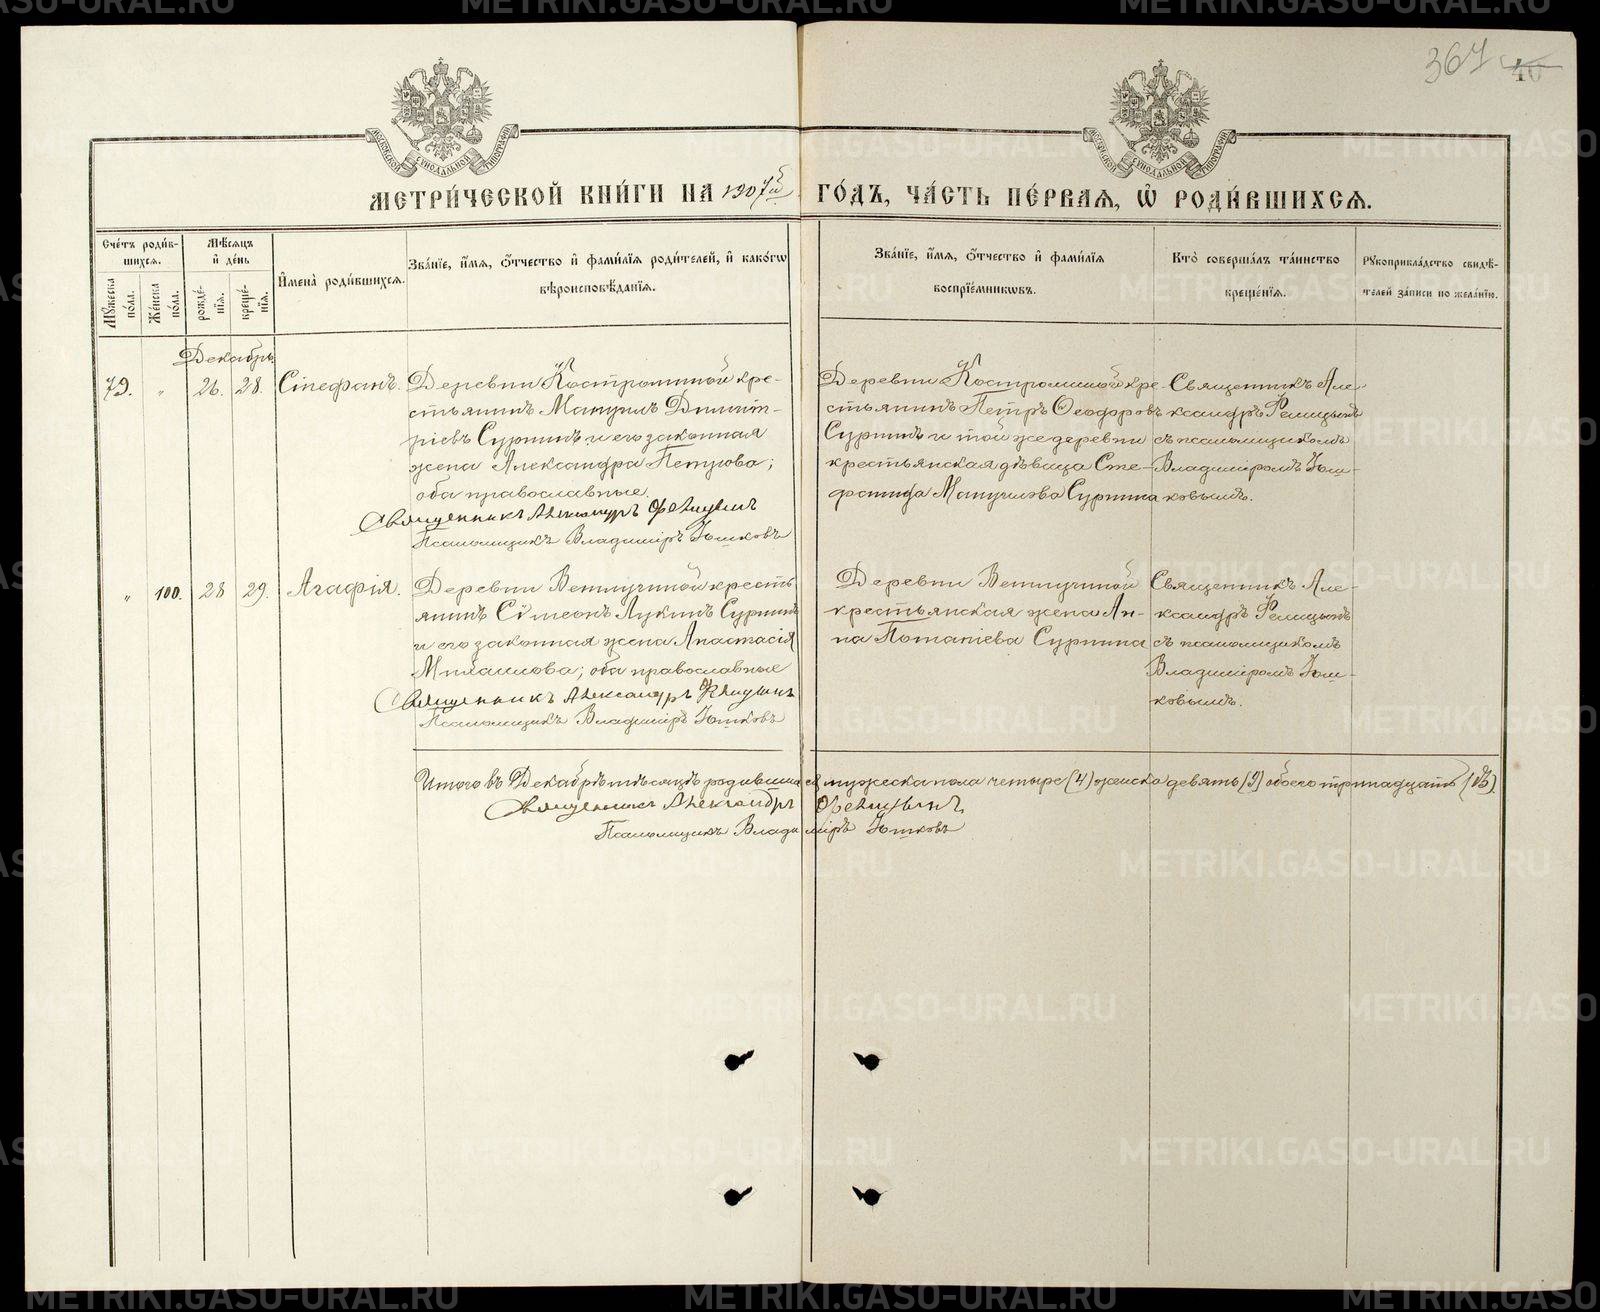 367 40
МОСКОВСКОЙ СѴНОДАЛЬНОЙ ТИПОГРАФІИ
МОСКОВСКОЙ СѴНОДАЛЬНОЙ ТИПОГРАФІИ
МЕТРИ́ЧЕСКОЙ КНИ́ГИ НА 1907й ГО́ДЪ, ЧА́СТЬ ПЕ́РВАѦ, Ѡ҆ РОДИ́ВШИХСѦ.
Сче́тъ роди́вшихсѧ.
Мꙋ́жеска по́ла.
Же́нска по́ла.
Мѣ́сѧцъ и҆ де́нь
рожде́нїѧ.
креще́нїѧ.
И҆мена̀ роди́вшихсѧ.
Зва́нїе, и҆́мѧ, ѻ҆́тчество и҆ фами́лїѧ роди́телей, и҆ како́гѡ
вѣроисповѣ́данїѧ.
Зва́нїе, и҆́мѧ, ѻ҆́тчество и҆ фами́лїѧ
воспрїе́мникѡвъ.
Кто̀ соверша́лъ та́инство
креще́нїѧ.
Рꙋкоприкла́дство свидѣ́-
телей за́писи по жела́нїю.
Декабрь.
79. " 26. 28. Стефанъ.
Деревни Костроминой кре-
стьянинъ Мануилъ Димит-
ріевъ Суринъ и его законная
жена Александра Петрова;
оба православные.
Священникъ Александръ Ѳелицынъ
Псаломщикъ Владиміръ Юшковъ
Деревни Костроминой кре-
стьянинъ Петръ Ѳеодоровъ
Суринъ и той же деревни
крестьянская дѣвица Сте-
фанида Мануилова Сурина
Священникъ Але-
ксандръ Фелицынъ
съ псаломщикомъ
Владиміромъ Юш-
ковымъ.
" 100. 28 29. Агафія.
Деревни Ветлугиной кресть-
янинъ Сѵмеонъ Лукинъ Суринъ
и его законная жена Анастасія
Михаилова; оба православные
Священникъ Александръ Ѳелицынъ
Псаломщикъ Владиміръ Юшковъ
Деревни Ветлугиной
крестьянская жена Ан-
на Потапіева Сурина
Священникъ Але-
ксандръ Фелицынъ
съ псаломщикомъ
Владиміромъ Юш-
ковымъ.
Итого въ Декабрѣ мѣсяцѣ родившихся мужеска пола четыре (4) женска девять (9) обоего тринадцать (13).
Священникъ Александръ Ѳелицынъ
Псаломщикъ Владиміръ Юшковъ
METRIKI.GASO-URAL.RU